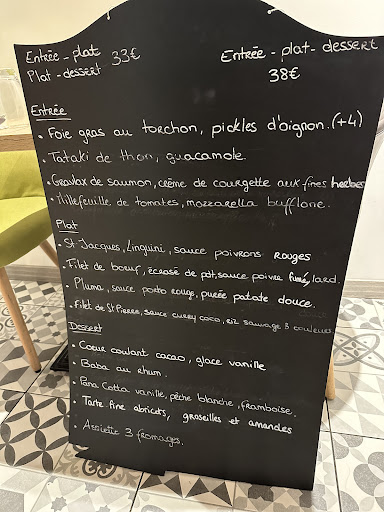 Entrée - plat 33€
Plat - dessert
Entrée - plat - dessert
38€
Entrée
• Foie gras au torchon, pickles d'oignon. (+4)
• Tataki de thon, guacamole.
• Gravlax de saumon, crème de courgette aux fines herbes
• Millefeuille de tomates, mozzarella bufflone.
Plat
• St Jacques, Linguini, sauce poivrons rouges
• Filet de bœuf, écrasé de pdt, sauce poivre fumé, lard.
• Pluma, sauce porto rouge, purée patate douce.
• Filet de St Pierre, sauce curry coco, riz sauvage 3 couleurs
Dessert
• Coeur coulant cacao, glace vanille
• Baba au rhum.
• Pana Cotta vanille, pêche blanche, framboise.
• Tarte fine abricots, groseilles et amandes
• Assiette 3 fromages.